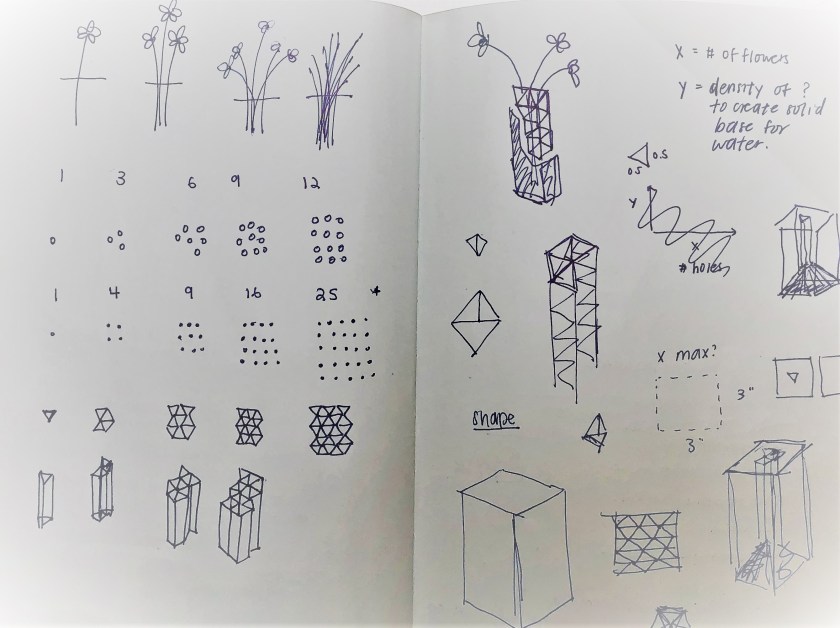 1 3 6 9 12
1 4 9 16 25 *
x = # of flowers
y = density of ?
to create solid
base for
water.
0.5
0.5
y
x
# holes
x max?
3"
3"
shape